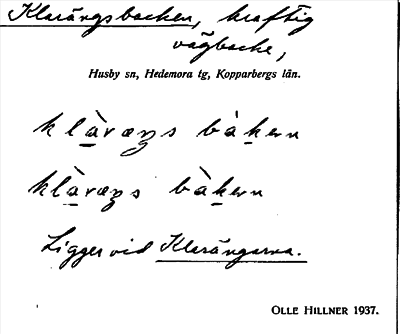 Klarängsbacken, kraftig
vägbacke,
Husby sn, Hedemora tg, Kopparbergs län.
klàræŋs bàkɐn
klàræŋs bàkɐn
Ligger vid Klarängarna.
OLLE HILLNER 1937.